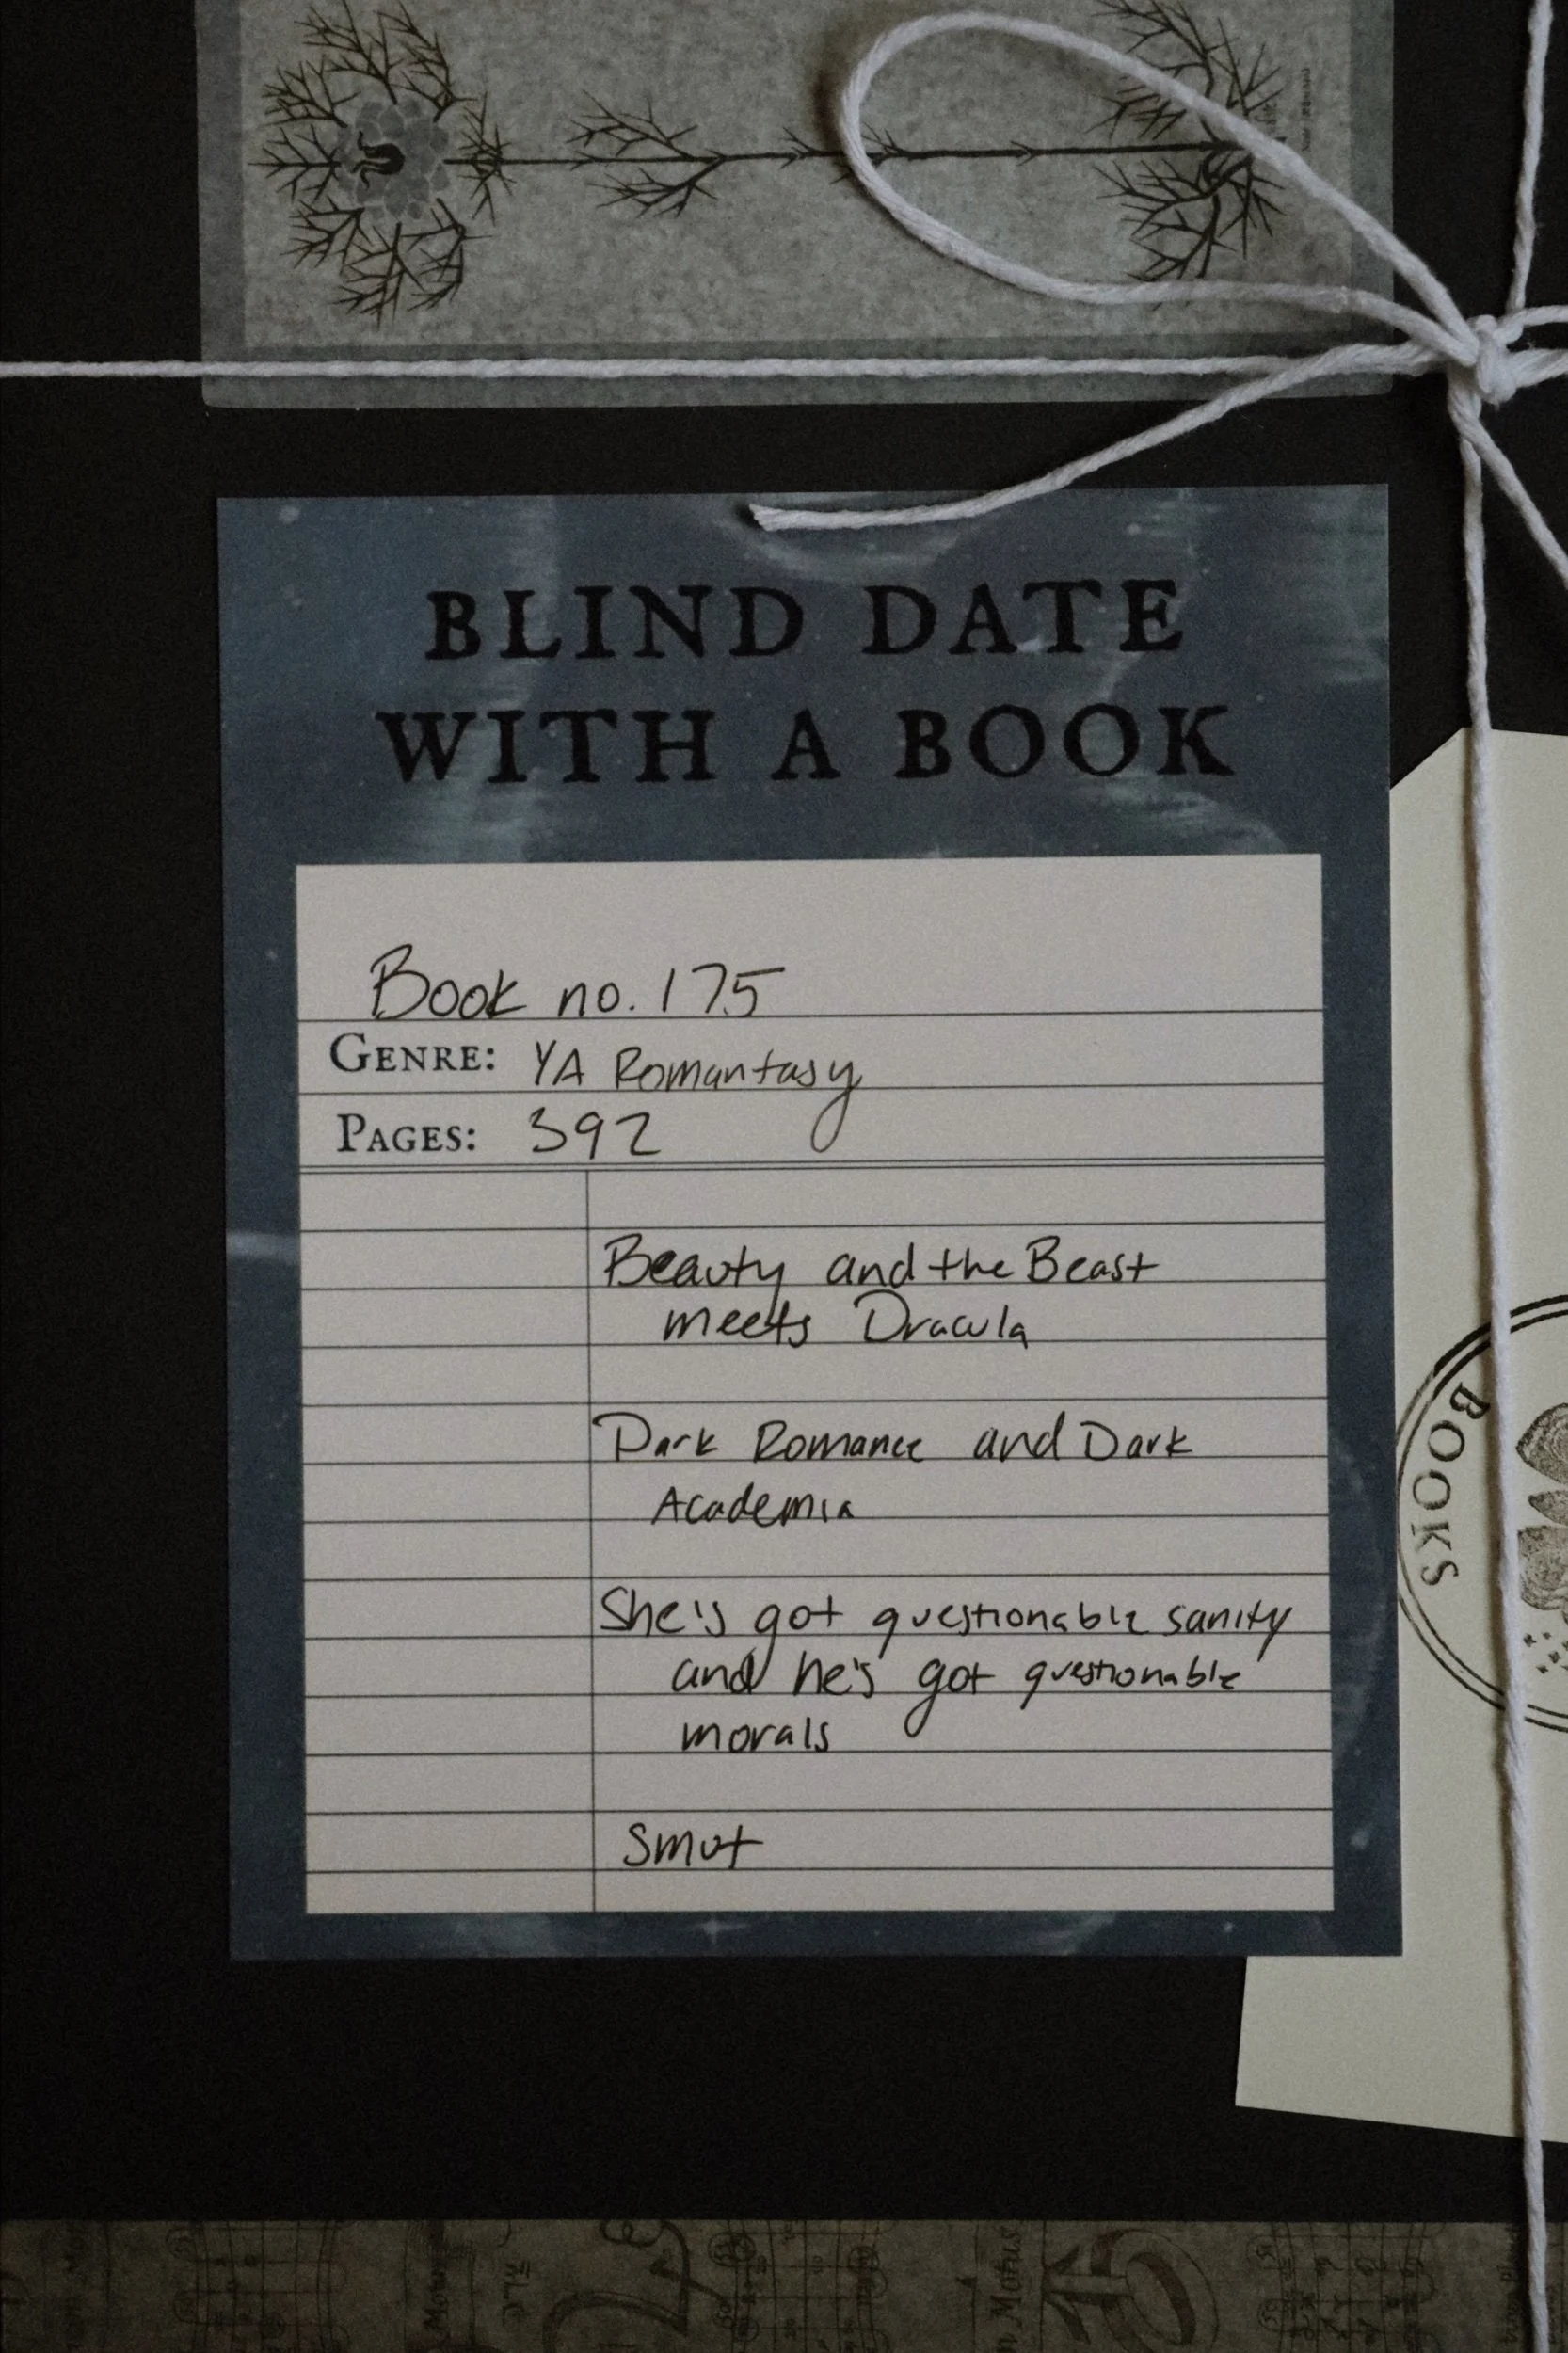 BLIND DATE
WITH A BOOK
Book no. 175
GENRE: YA Romantasy
PAGES: 392
Beauty and the Beast
meets Dracula
Dark Romance and Dark
Academia
She's got questionable sanity
and he's got questionable
morals
Smut
BOOKS